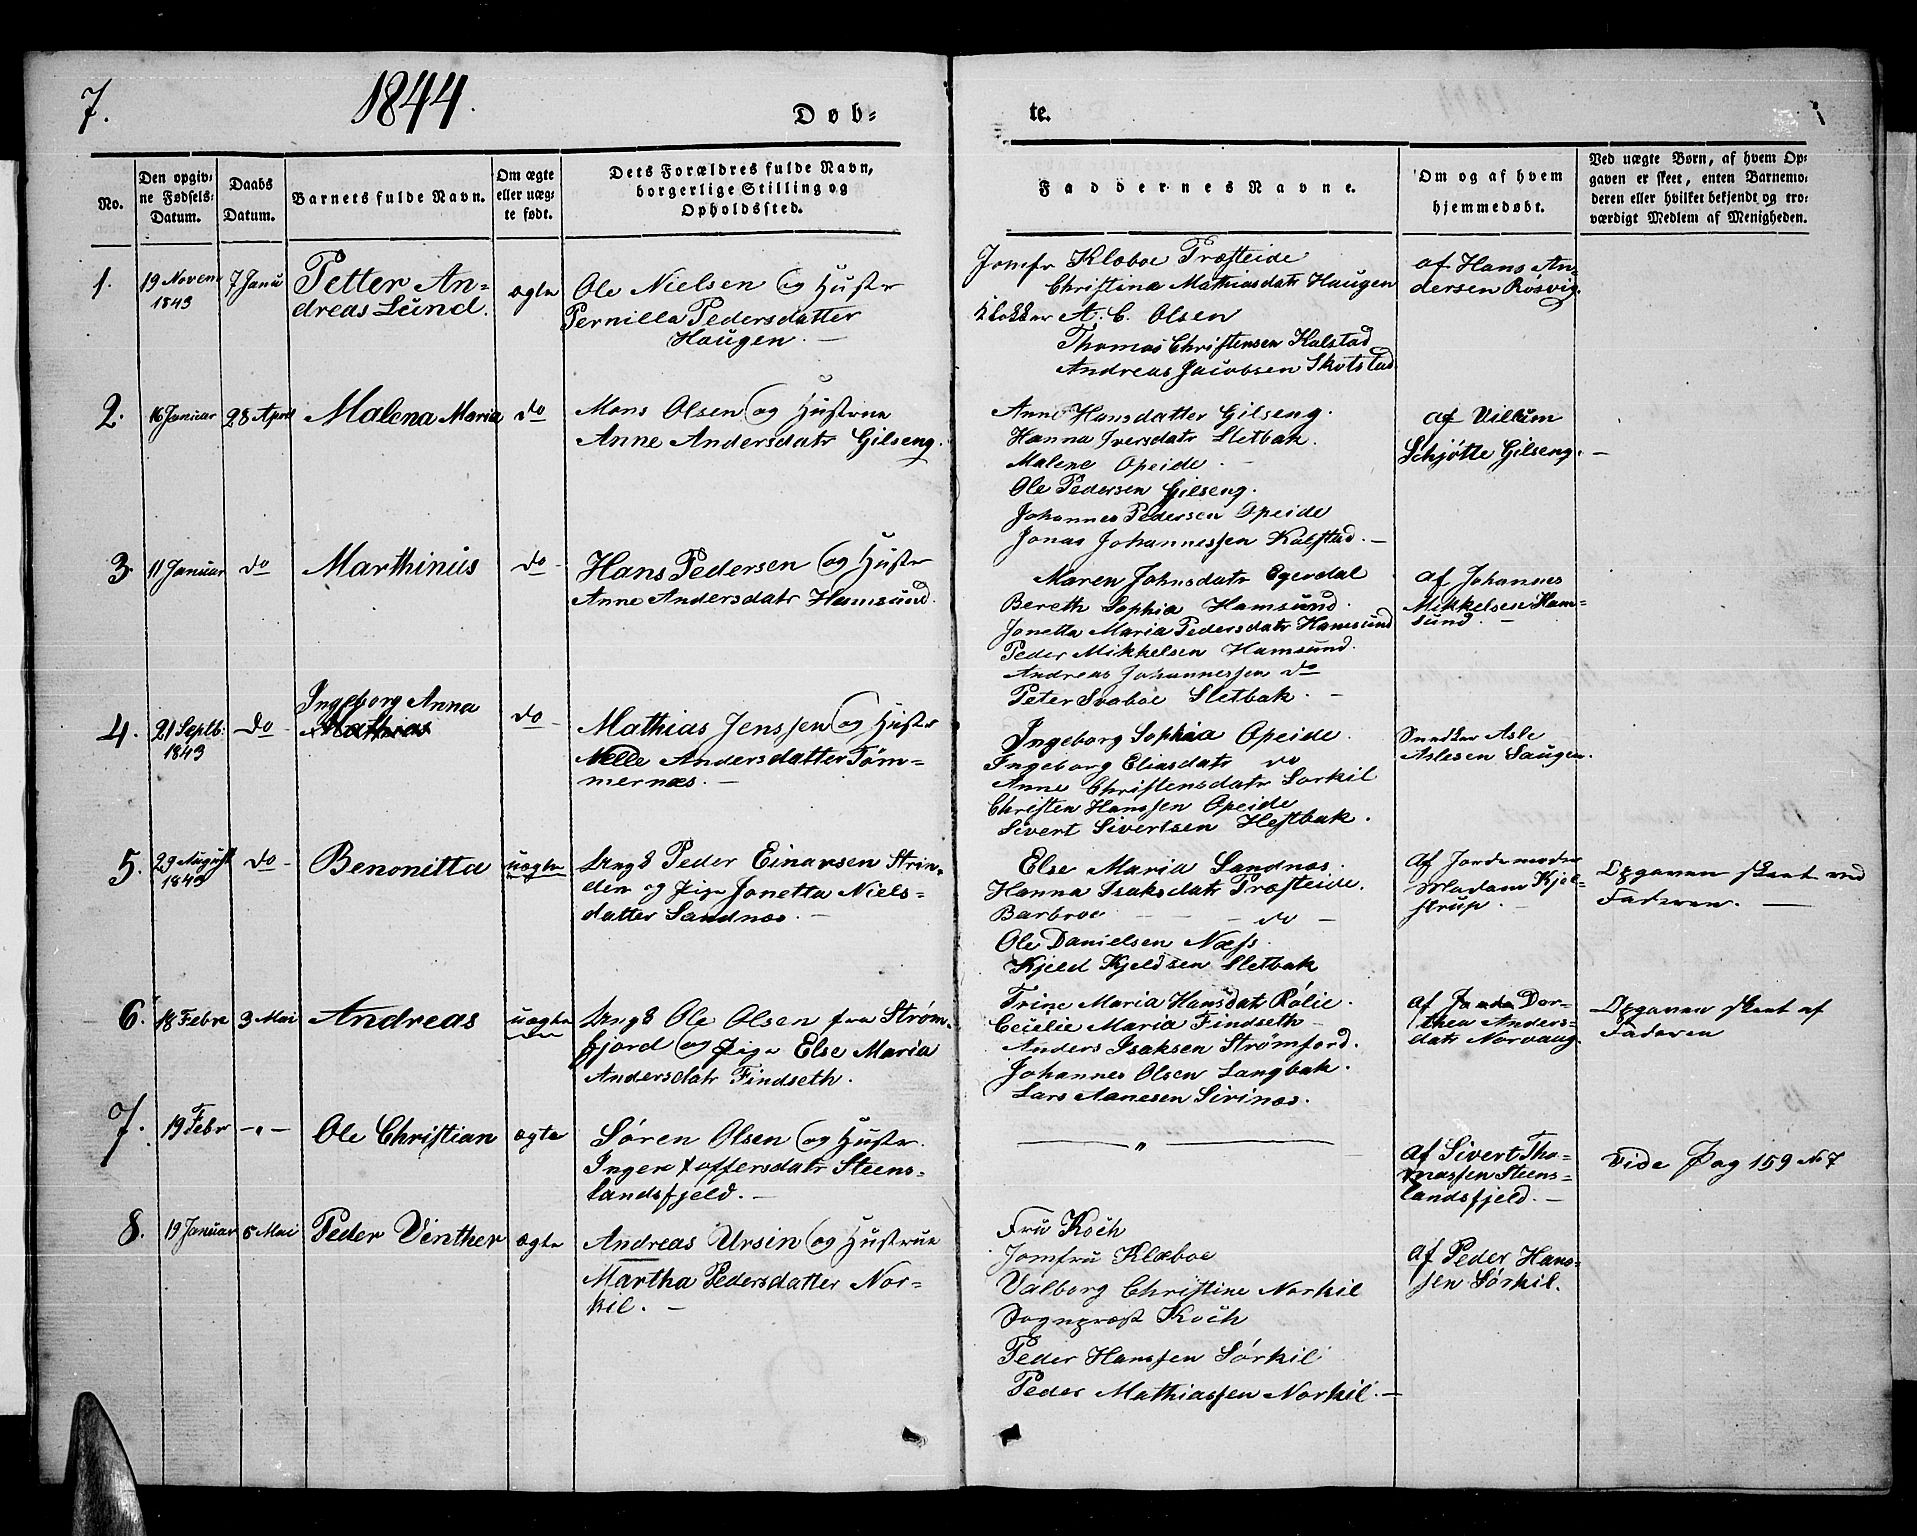 7.
1844.
Døb-
te.
No.
Den opgiv-
ne Fødsels-
Datum.
Daabs
Datum.
Barnets fulde Navn.
Om ægte
eller uæg-
te født.
Dets Forældres fulde Navn,
borgerlige Stilling og
Opholdssted.
Faddernes Navne.
Om og af hvem
hjemmedøbt.
Ved uægte Børn, af hvem Op-
gaven er skeet, enten Barnemo-
deren eller hvilket bekjendt og tro-
værdigt Medlem af Menigheden.
1.
19 Novem
1843
7 Janu
Petter An-
dreas Lund.
ægte
Ole Nielsen og Hustr
Pernilla Pedersdatter
Haugen. —
Jomfr Klæboe Præsteide
Christina Mathiasdatr Haugen
Klokker A. C. Olsen
Thomas Christensen Kalstad
Andreas Jacobsen Skotstad
af Hans An-
dersen Rosvig.
2.
16 Januar
28 April
Malena Maria
do
Mons Olsen og Hustrue
Anne Andersdatr Gilseng.
Anne Hansdatter Gilseng.
Hanna Iversdatr Sletbak.
Malene Opeide. —
Ole Pedersen Gilseng.
Johannes Pedersen Opeide
Jonas Johannessen Kalstad. —
af Villum
Schjøtte Gilseng. —
3
11 Januar
do
Marthinus
do
Hans Pedersen og Hustr
Anne Andersdatr Hamsund.
Maren Johnsdatr Egerdal
Bereth Sophia Hamsund.
Jonetta Maria Pedersdatr Hamsund
Peder Mikkelsen Hamsund.
Andreas Johannessen do
Peter Svaboe Sletbak. —
af Johannes
Mikkelsen Ham-
sund. —
4.
21 Septb.
1843
do
Ingeborg Anna
Mathias
do
Mathias Jenssen og Hustr
Nelle Andersdatter Tøm-
mernæs. —
Ingeborg Sophia Opeide.
Ingeborg Eliasdatr do
Anne Christensdatr Sørkil
Christen Hanssen Opeide
Sivert Sivertsen Hestbak.
Snedker Asle
Aslesen Haugen.
5.
29 August
1843
do
Benonitta
uægte
Ungk Peder Einarsen Strin-
den og Pige Jonetta Niels-
datter Sandnæs. —
Else Maria Sandnæs.
Hanna Isaksdatr Præsteide.
Barbroe — — do —
Ole Danielsen Næss.
Kjeld Kjeldsen Sletbak
af Jordemoder
Madam Kjel-
strup. —
Opgaven skeet ved
Faderen. —
6.
18 Febr
3 Mai
Andreas
uægte
Ungk Ole Olsen fra Strøm-
fjord og Pige Else Maria
Andersdatr Findseth.
Trine Maria Hansdatr Rølie.
Cecilie Maria Findseth —
Anders Isaksen Strømfjord.
Johannes Olsen Langbak.
Lars Aanesen Sirinæs.
af Dor-
thea Anders-
datr Norvaag.
Opgaven skeet af
Faderen
7.
19 Febr
—"—
Ole Christian
ægte
Søren Olsen og Hustr.
Inger Toffersdatr Steens-
landsfjeld. —
— " —
af Sivert Tho-
massen Steens-
landsfjeld. —
Vide Pag 159 No 7
8.
19 Januar
5 Mai
Peder Vinther
ægte
Andreas Ursin og Hustrue
Martha Pedersdatter Nor-
kil. —
Fru Koch
Jomfru Klæboe
Valborg Christine Norkil
Sognepræst Koch
Peder Hanssen Sørkil
Peder Mathiassen Norkil. —
af Peder Hans-
sen Sørkil.